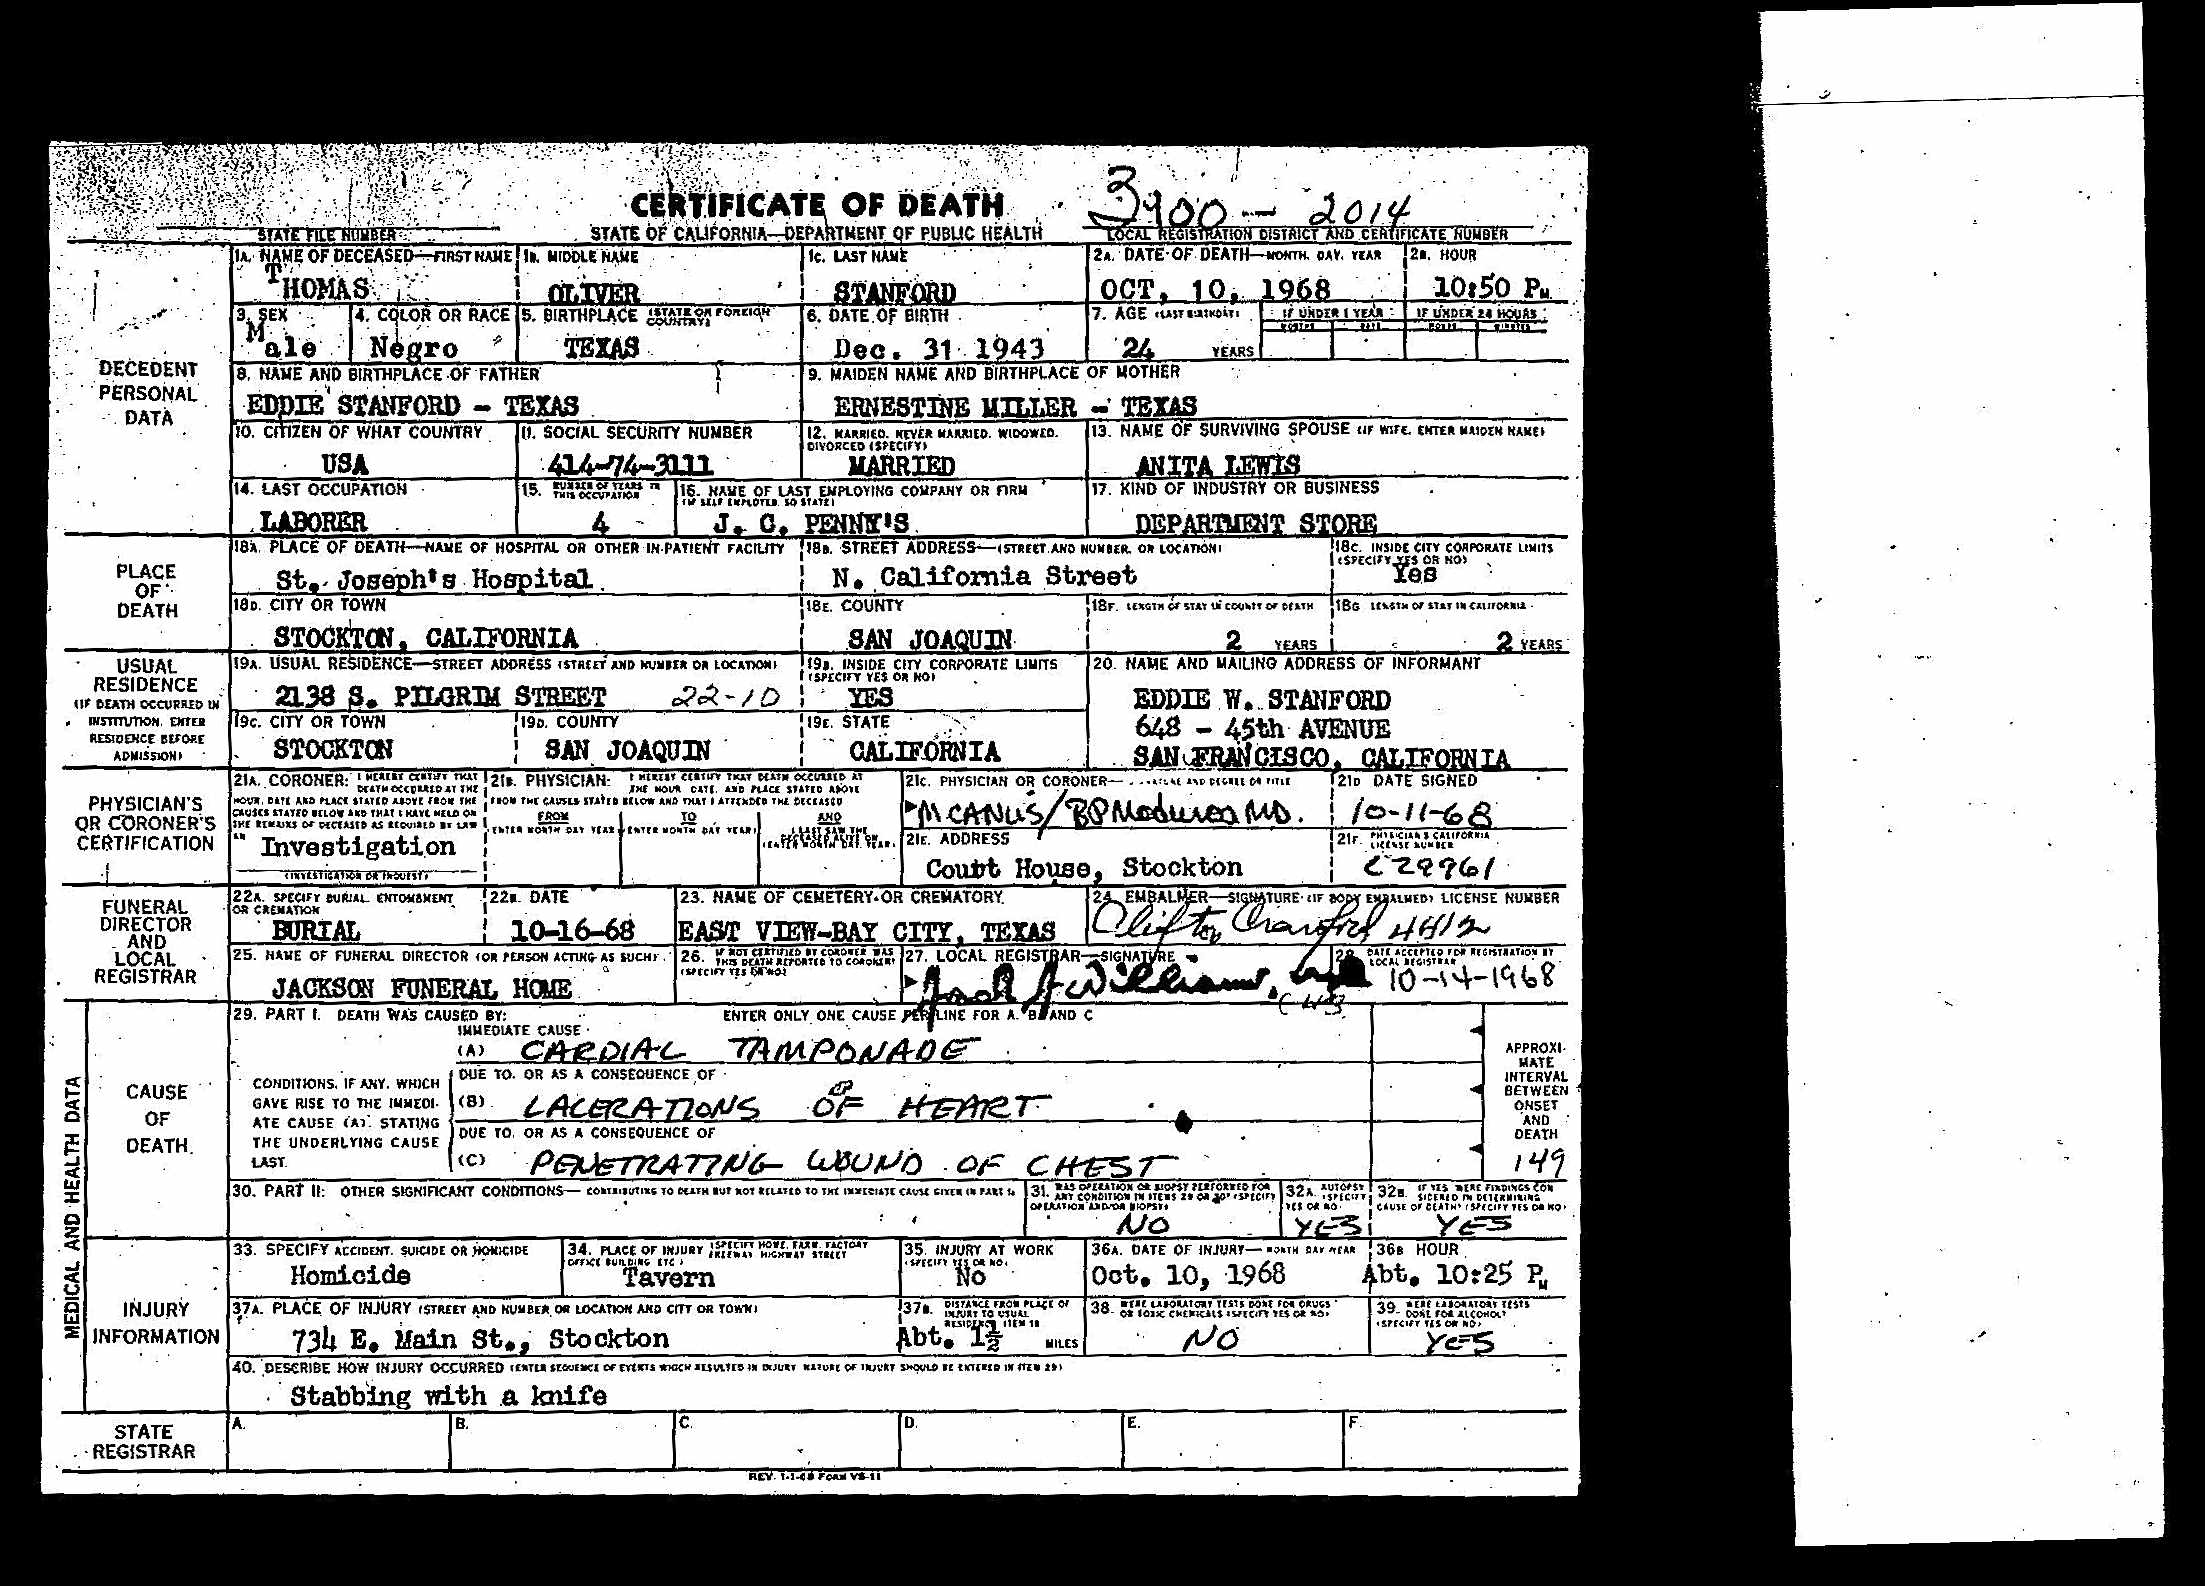 CERTIFICATE OF DEATH
3900 — 2014
STATE FILE NUMBER
STATE OF CALIFORNIA—DEPARTMENT OF PUBLIC HEALTH
LOCAL REGISTRATION DISTRICT AND CERTIFICATE NUMBER
DECEDENT PERSONAL DATA
1A. NAME OF DECEASED—FIRST NAME
THOMAS
1B. MIDDLE NAME
OLIVER
1C. LAST NAME
STANFORD
2A. DATE OF DEATH—MONTH, DAY, YEAR
OCT, 10, 1968
2B. HOUR
10:50 PM
3. SEX
Male
4. COLOR OR RACE
Negro
5. BIRTHPLACE (STATE OR FOREIGN COUNTRY)
TEXAS
6. DATE OF BIRTH
Dec. 31 1943
7. AGE (LAST BIRTHDAY)
24 YEARS
IF UNDER 1 YEAR
IF UNDER 24 HOURS
8. NAME AND BIRTHPLACE OF FATHER
EDDIE STANFORD - TEXAS
9. MAIDEN NAME AND BIRTHPLACE OF MOTHER
ERNESTINE MILLER - TEXAS
10. CITIZEN OF WHAT COUNTRY
USA
11. SOCIAL SECURITY NUMBER
414-74-3111
12. MARRIED, NEVER MARRIED, WIDOWED, DIVORCED (SPECIFY)
MARRIED
13. NAME OF SURVIVING SPOUSE (IF WIFE, ENTER MAIDEN NAME)
ANITA LEWIS
14. LAST OCCUPATION
LABORER
15. NUMBER OF YEARS IN THIS OCCUPATION
4
16. NAME OF LAST EMPLOYING COMPANY OR FIRM (IF SELF EMPLOYED, SO STATE)
J. C. PENNY'S
17. KIND OF INDUSTRY OR BUSINESS
DEPARTMENT STORE
PLACE OF DEATH
18A. PLACE OF DEATH—NAME OF HOSPITAL OR OTHER IN-PATIENT FACILITY
St. Joseph's Hospital
18B. STREET ADDRESS—(STREET AND NUMBER, OR LOCATION)
N. California Street
18C. INSIDE CITY CORPORATE LIMITS (SPECIFY YES OR NO)
Yes
18D. CITY OR TOWN
STOCKTON, CALIFORNIA
18E. COUNTY
SAN JOAQUIN
18F. LENGTH OF STAY IN COUNTY OF DEATH
2 YEARS
18G LENGTH OF STAY IN CALIFORNIA
2 YEARS
USUAL RESIDENCE
(IF DEATH OCCURRED IN INSTITUTION, ENTER RESIDENCE BEFORE ADMISSION)
19A. USUAL RESIDENCE—STREET ADDRESS (STREET AND NUMBER OR LOCATION)
2138 S. PILGRIM STREET 22-10
19B. INSIDE CITY CORPORATE LIMITS (SPECIFY YES OR NO)
YES
20. NAME AND MAILING ADDRESS OF INFORMANT
EDDIE W. STANFORD
648 - 45th AVENUE
SAN FRANCISCO, CALIFORNIA
19C. CITY OR TOWN
STOCKTON
19D. COUNTY
SAN JOAQUIN
19E. STATE
CALIFORNIA
PHYSICIAN'S OR CORONER'S CERTIFICATION
21A. CORONER: I HEREBY CERTIFY THAT DEATH OCCURRED AT THE HOUR, DATE AND PLACE STATED ABOVE FROM THE CAUSES STATED BELOW AND THAT I HAVE HELD ON THE REMAINS OF DECEASED AS REQUIRED BY LAW
AN Investigation
(INVESTIGATION OR INQUEST)
21B. PHYSICIAN: I HEREBY CERTIFY THAT DEATH OCCURRED AT THE HOUR, DATE, AND PLACE STATED ABOVE FROM THE CAUSES STATED BELOW AND THAT I ATTENDED THE DECEASED
FROM TO AND
(ENTER MONTH DAY YEAR) (ENTER MONTH DAY YEAR) I LAST SAW THE DECEASED ALIVE ON (ENTER MONTH, DAY, YEAR)
21C. PHYSICIAN OR CORONER—SIGNATURE AND DEGREE OR TITLE
21D DATE SIGNED
10-11-68
21E. ADDRESS
Coubt House, Stockton
21F. PHYSICIAN'S CALIFORNIA LICENSE NUMBER
C29961
FUNERAL DIRECTOR AND LOCAL REGISTRAR
22A. SPECIFY BURIAL, ENTOMBMENT OR CREMATION
BURIAL
22B. DATE
10-16-68
23. NAME OF CEMETERY OR CREMATORY
EAST VIEW-BAY CITY, TEXAS
24. EMBALMER—SIGNATURE (IF BODY EMBALMED) LICENSE NUMBER
Clifton Cranford 4412
25. NAME OF FUNERAL DIRECTOR (OR PERSON ACTING AS SUCH)
JACKSON FUNERAL HOME
26. IF NOT CERTIFIED BY CORONER WAS THIS DEATH REPORTED TO CORONER? (SPECIFY YES OR NO)
27. LOCAL REGISTRAR—SIGNATURE
Williams
28. DATE ACCEPTED FOR REGISTRATION BY LOCAL REGISTRAR
10-14-1968
MEDICAL AND HEALTH DATA
CAUSE OF DEATH
29. PART I. DEATH WAS CAUSED BY:
ENTER ONLY ONE CAUSE PER LINE FOR A, B AND C
IMMEDIATE CAUSE
(A) CARDIAC TAMPONADE
CONDITIONS, IF ANY, WHICH GAVE RISE TO THE IMMEDIATE CAUSE (A), STATING THE UNDERLYING CAUSE LAST.
DUE TO, OR AS A CONSEQUENCE OF
(B) LACERATIONS OF HEART
DUE TO, OR AS A CONSEQUENCE OF
(C) PENETRATING WOUND OF CHEST
APPROXIMATE INTERVAL BETWEEN ONSET AND DEATH
149
30. PART II: OTHER SIGNIFICANT CONDITIONS—CONTRIBUTING TO DEATH BUT NOT RELATED TO THE IMMEDIATE CAUSE GIVEN IN PART I A
31. WAS OPERATION OR BIOPSY PERFORMED FOR ANY CONDITION IN ITEMS 29 OR 30? (SPECIFY OPERATION AND/OR BIOPSY)
NO
32A. AUTOPSY (SPECIFY YES OR NO)
YES
32B. IF YES WERE FINDINGS CONSIDERED IN DETERMINING CAUSE OF DEATH? (SPECIFY YES OR NO)
YES
INJURY INFORMATION
33. SPECIFY ACCIDENT, SUICIDE OR HOMICIDE
Homicide
34. PLACE OF INJURY (SPECIFY HOME, FARM, FACTORY, FREEWAY, HIGHWAY, STREET, OFFICE BUILDING, ETC.)
Tavern
35. INJURY AT WORK (SPECIFY YES OR NO)
No
36A. DATE OF INJURY—MONTH DAY YEAR
Oct. 10, 1968
36B HOUR
Abt. 10:25 PM
37A. PLACE OF INJURY (STREET AND NUMBER OR LOCATION AND CITY OR TOWN)
734 E. Main St., Stockton
37B. DISTANCE FROM PLACE OF INJURY TO USUAL RESIDENCE ITEM 19
Abt. 1½ MILES
38. WERE LABORATORY TESTS DONE FOR DRUGS OR TOXIC CHEMICALS (SPECIFY YES OR NO)
NO
39. WERE LABORATORY TESTS DONE FOR ALCOHOL? (SPECIFY YES OR NO)
YES
40. DESCRIBE HOW INJURY OCCURRED (ENTER SEQUENCE OF EVENTS WHICH RESULTED IN INJURY NATURE OF INJURY SHOULD BE ENTERED IN ITEM 29)
Stabbing with a knife
STATE REGISTRAR
A. B. C. D. E. F.
REV. 1-1-68 FORM VS-11